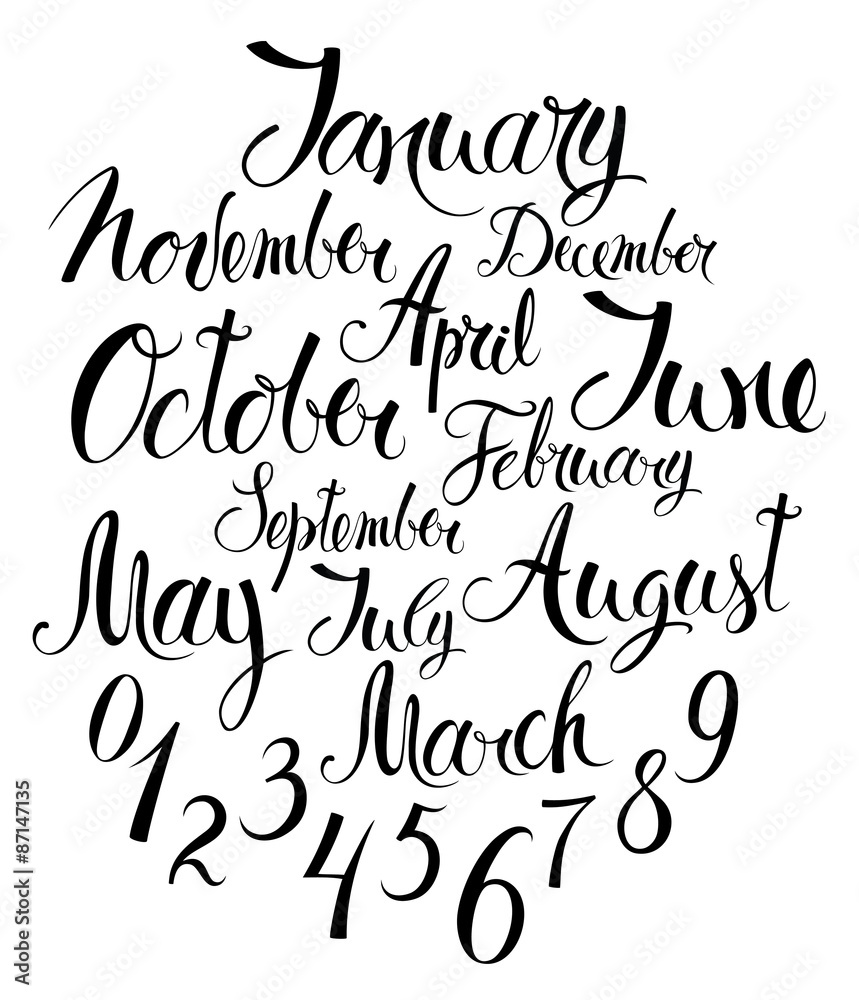 January
November December
April
October June
February
September
May July August
March
0 1 2 3 4 5 6 7 8 9
Adobe Stock | #87147135